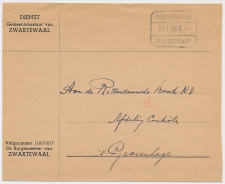 DIENST
Gemeentebestuur van
ZWARTEWAAL
Aan de Rotterdamsche Bank N.V.
Afdeling Contrôle
's Gravenhage
Volgnummer
De Burgemeester van
ZWARTEWAAL